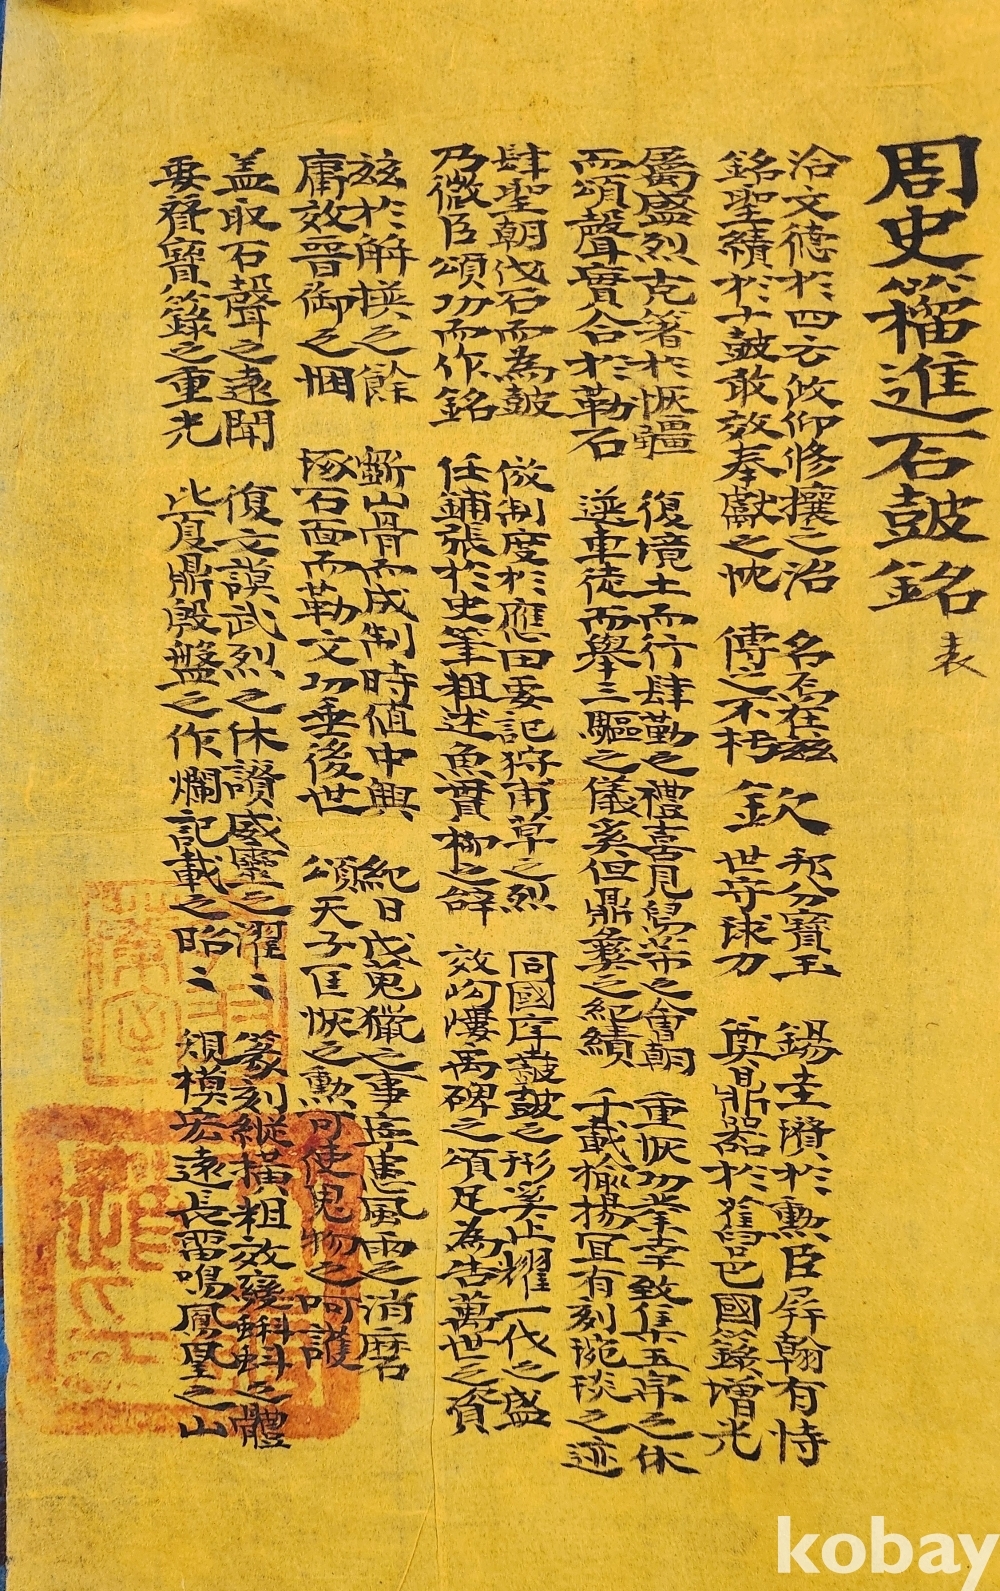 周史籀進石鼓銘 表
洽文德於四方攸仰修攘之治 名不在茲 邦分寶玉 錫圭瓚於勳臣屛翰有恃
銘聖績於十鼓敢效奉獻之忱 傳之不朽 欽 世守球刀 奠鼎器於舊邑國籙增光
屬盛烈克著於恢疆 復境土而行肆勤之禮喜見舃芾之會朝 重恢功業幸致集五宗之休
而頌聲實合於勒石 選車徒而擧三驅之儀奚但鼎彝之紀績 千載揄揚冝有刻琬琰之迹
肆聖朝伐石而為鼓 倣制度於應田要記狩甫草之烈 同國庠鼖鼓之形奚止耀一代之盛
乃微臣頌功而作銘 任鋪張於史筆粗述魚貫柳之辭 效岣嶁禹碑之頌足為告萬世之資
玆於解楧之餘 斲山骨而成制時値中興 紀日戊蒐獵之事庶憲風雨之消磨
庸效晉御之悃 琢石面而勒文功垂後世 頌天子匡恢之勳可使鬼物之呵護
盖取石聲之遠聞 復文謨武烈之休讚威靈之濯〻 篆刻縱橫粗效變蝌蚪之體
要聳寶籙之重光 比夏鼎殷盤之作爛記載之昭〻 規模宏遠長雷鳴鳳凰之山
kobay